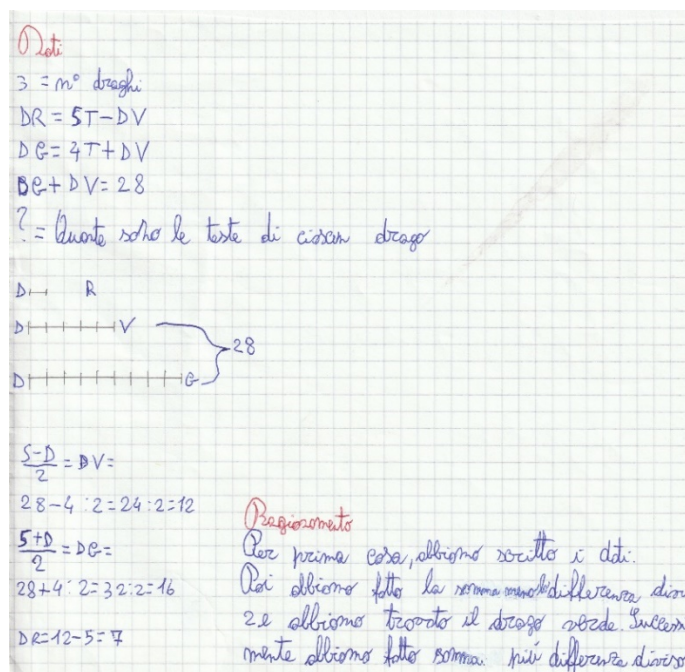 Dati
3 = n° draghi
DR = 5T-DV
DG = 4T+DV
DG+DV= 28
? = Quante sono le teste di ciascun drago
D R
D V
28
D G
S-D/2 = DV=
28-4:2=24:2=12
S+D/2 = DG=
28+4:2=32:2=16
DR=12-5=7
Ragionamento
Per prima cosa, abbiamo scritto i dati.
Poi abbiamo fatto la somma meno la differenza divi
2 e abbiamo trovato il drago verde. Success
mente abbiamo fatto somma più differenza diviso